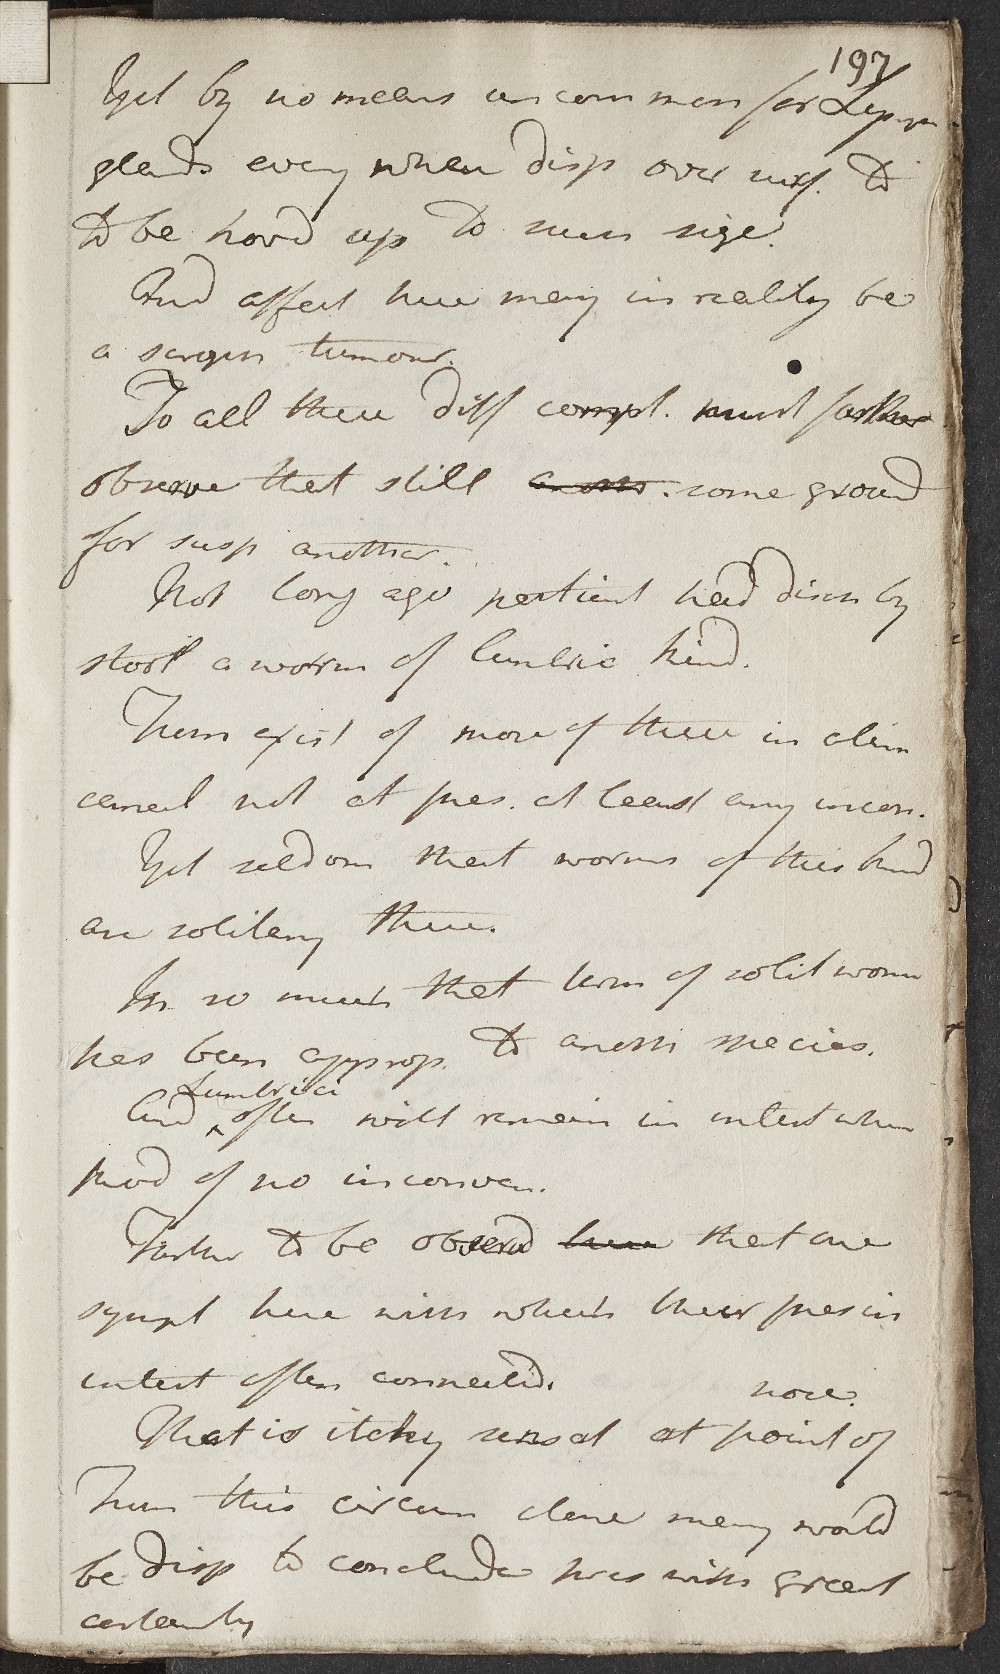 197
Yet by no means uncommon for Lymph
glands every where disp over surf. to
to be hard up to such size.
And affect here may in reality be
a tumour.
To all these diff compl. must farther
observe that still some ground
for susp another.
Not long ago patient had disch by
stool a worm of lumbric kind.
From exist of more of these in alim
canal not at pres. at least any incon.
Yet seldom that worms of this kind
are solitary there.
In so much that term of solit worm
has been approp. to anoth species.
And ^ Lumbrici often will remain in intest when
prod of no inconven.
Farther to be observd here that one
sympt here with which their pres in
intest often connected.
That is itchy sensat at point of nose.
From this circum alone many would
be disp to conclude pres with great
certainty